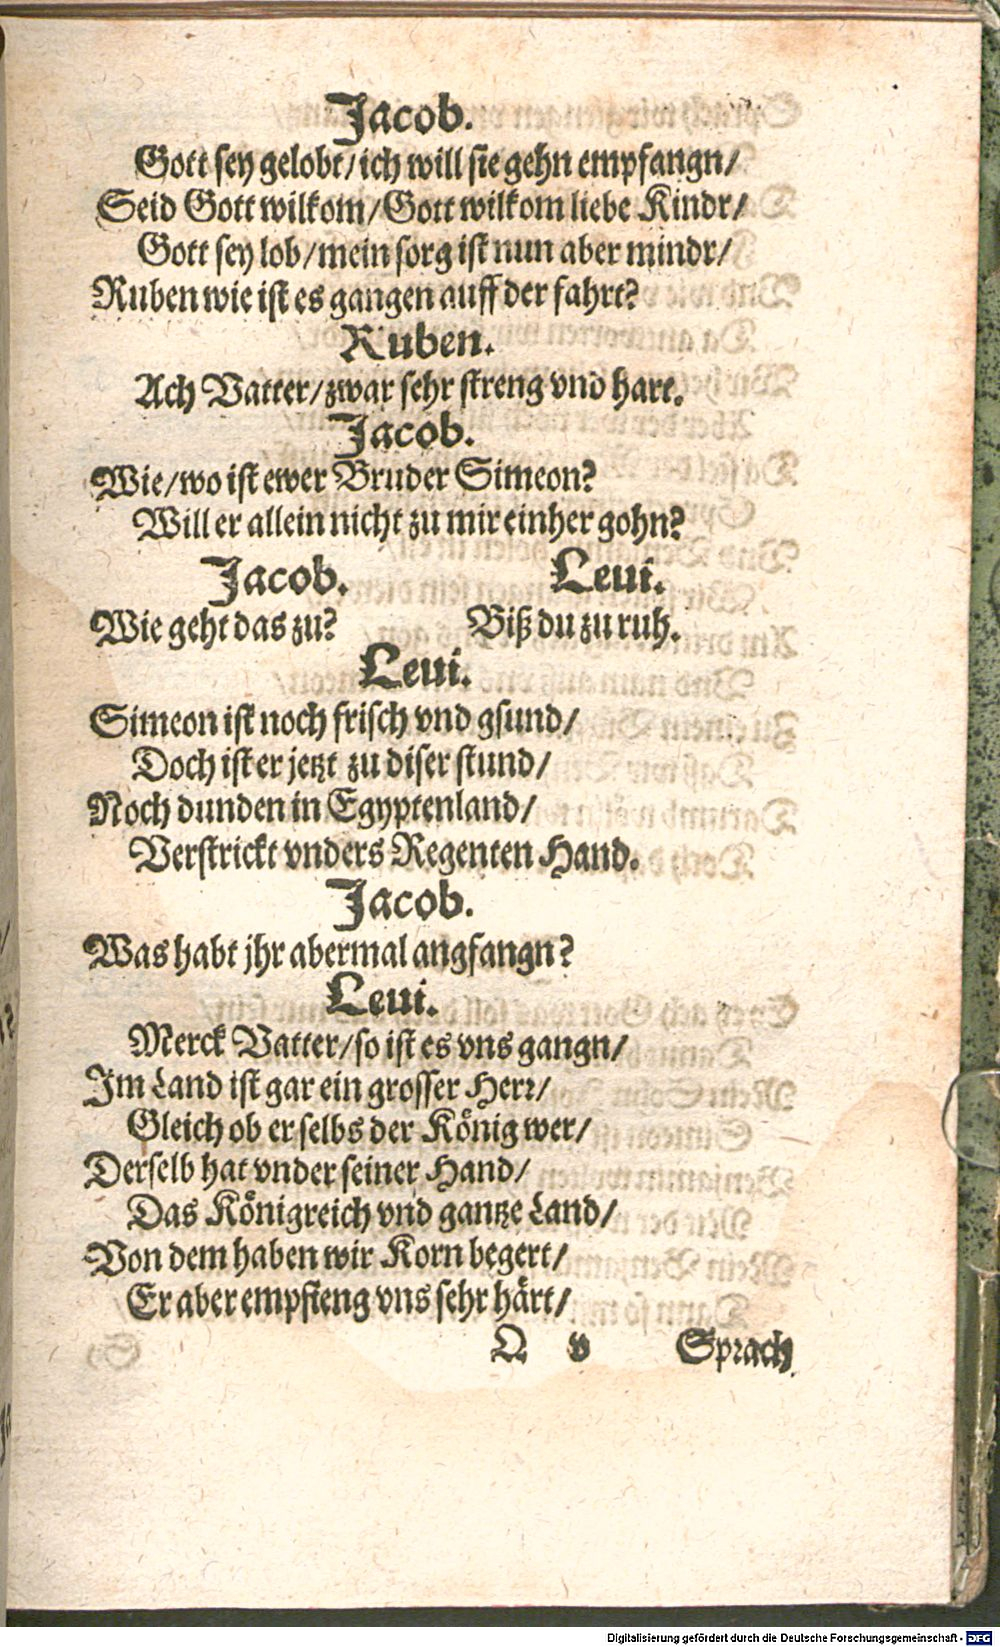 Jacob.
Gott sey gelobt/ich will sie gehn empfangn/
Seid Gott wilkom/Gott wilkom liebe Kindr/
Gott sey lob/mein sorg ist nun aber mindr/
Ruben wie ist es gangen auff der fahrt?
Ruben.
Ach Vatter/zwar sehr streng vnd hart.
Jacob.
Wie/wo ist ewer Bruder Simeon?
Will er allein nicht zu mir einher gohn?
Jacob. Leui.
Wie geht das zu? Biß du zu ruh.
Leui.
Simeon ist noch frisch vnd gsund/
Doch ist er jetzt zu diser stund/
Noch dunden in Egyptenland/
Verstrickt vnders Regenten Hand.
Jacob.
Was habt jhr abermal angfangn?
Leui.
Merck Vatter/so ist es vns gangn/
Im Land ist gar ein grosser Herr/
Gleich ob er selbs der König wer/
Derselb hat vnder seiner Hand/
Das Königreich vnd gantze Land/
Von dem haben wir Korn begert/
Er aber empfieng vns sehr härt/
Q v Sprach
Digitalisierung gefördert durch die Deutsche Forschungsgemeinschaft - DFG